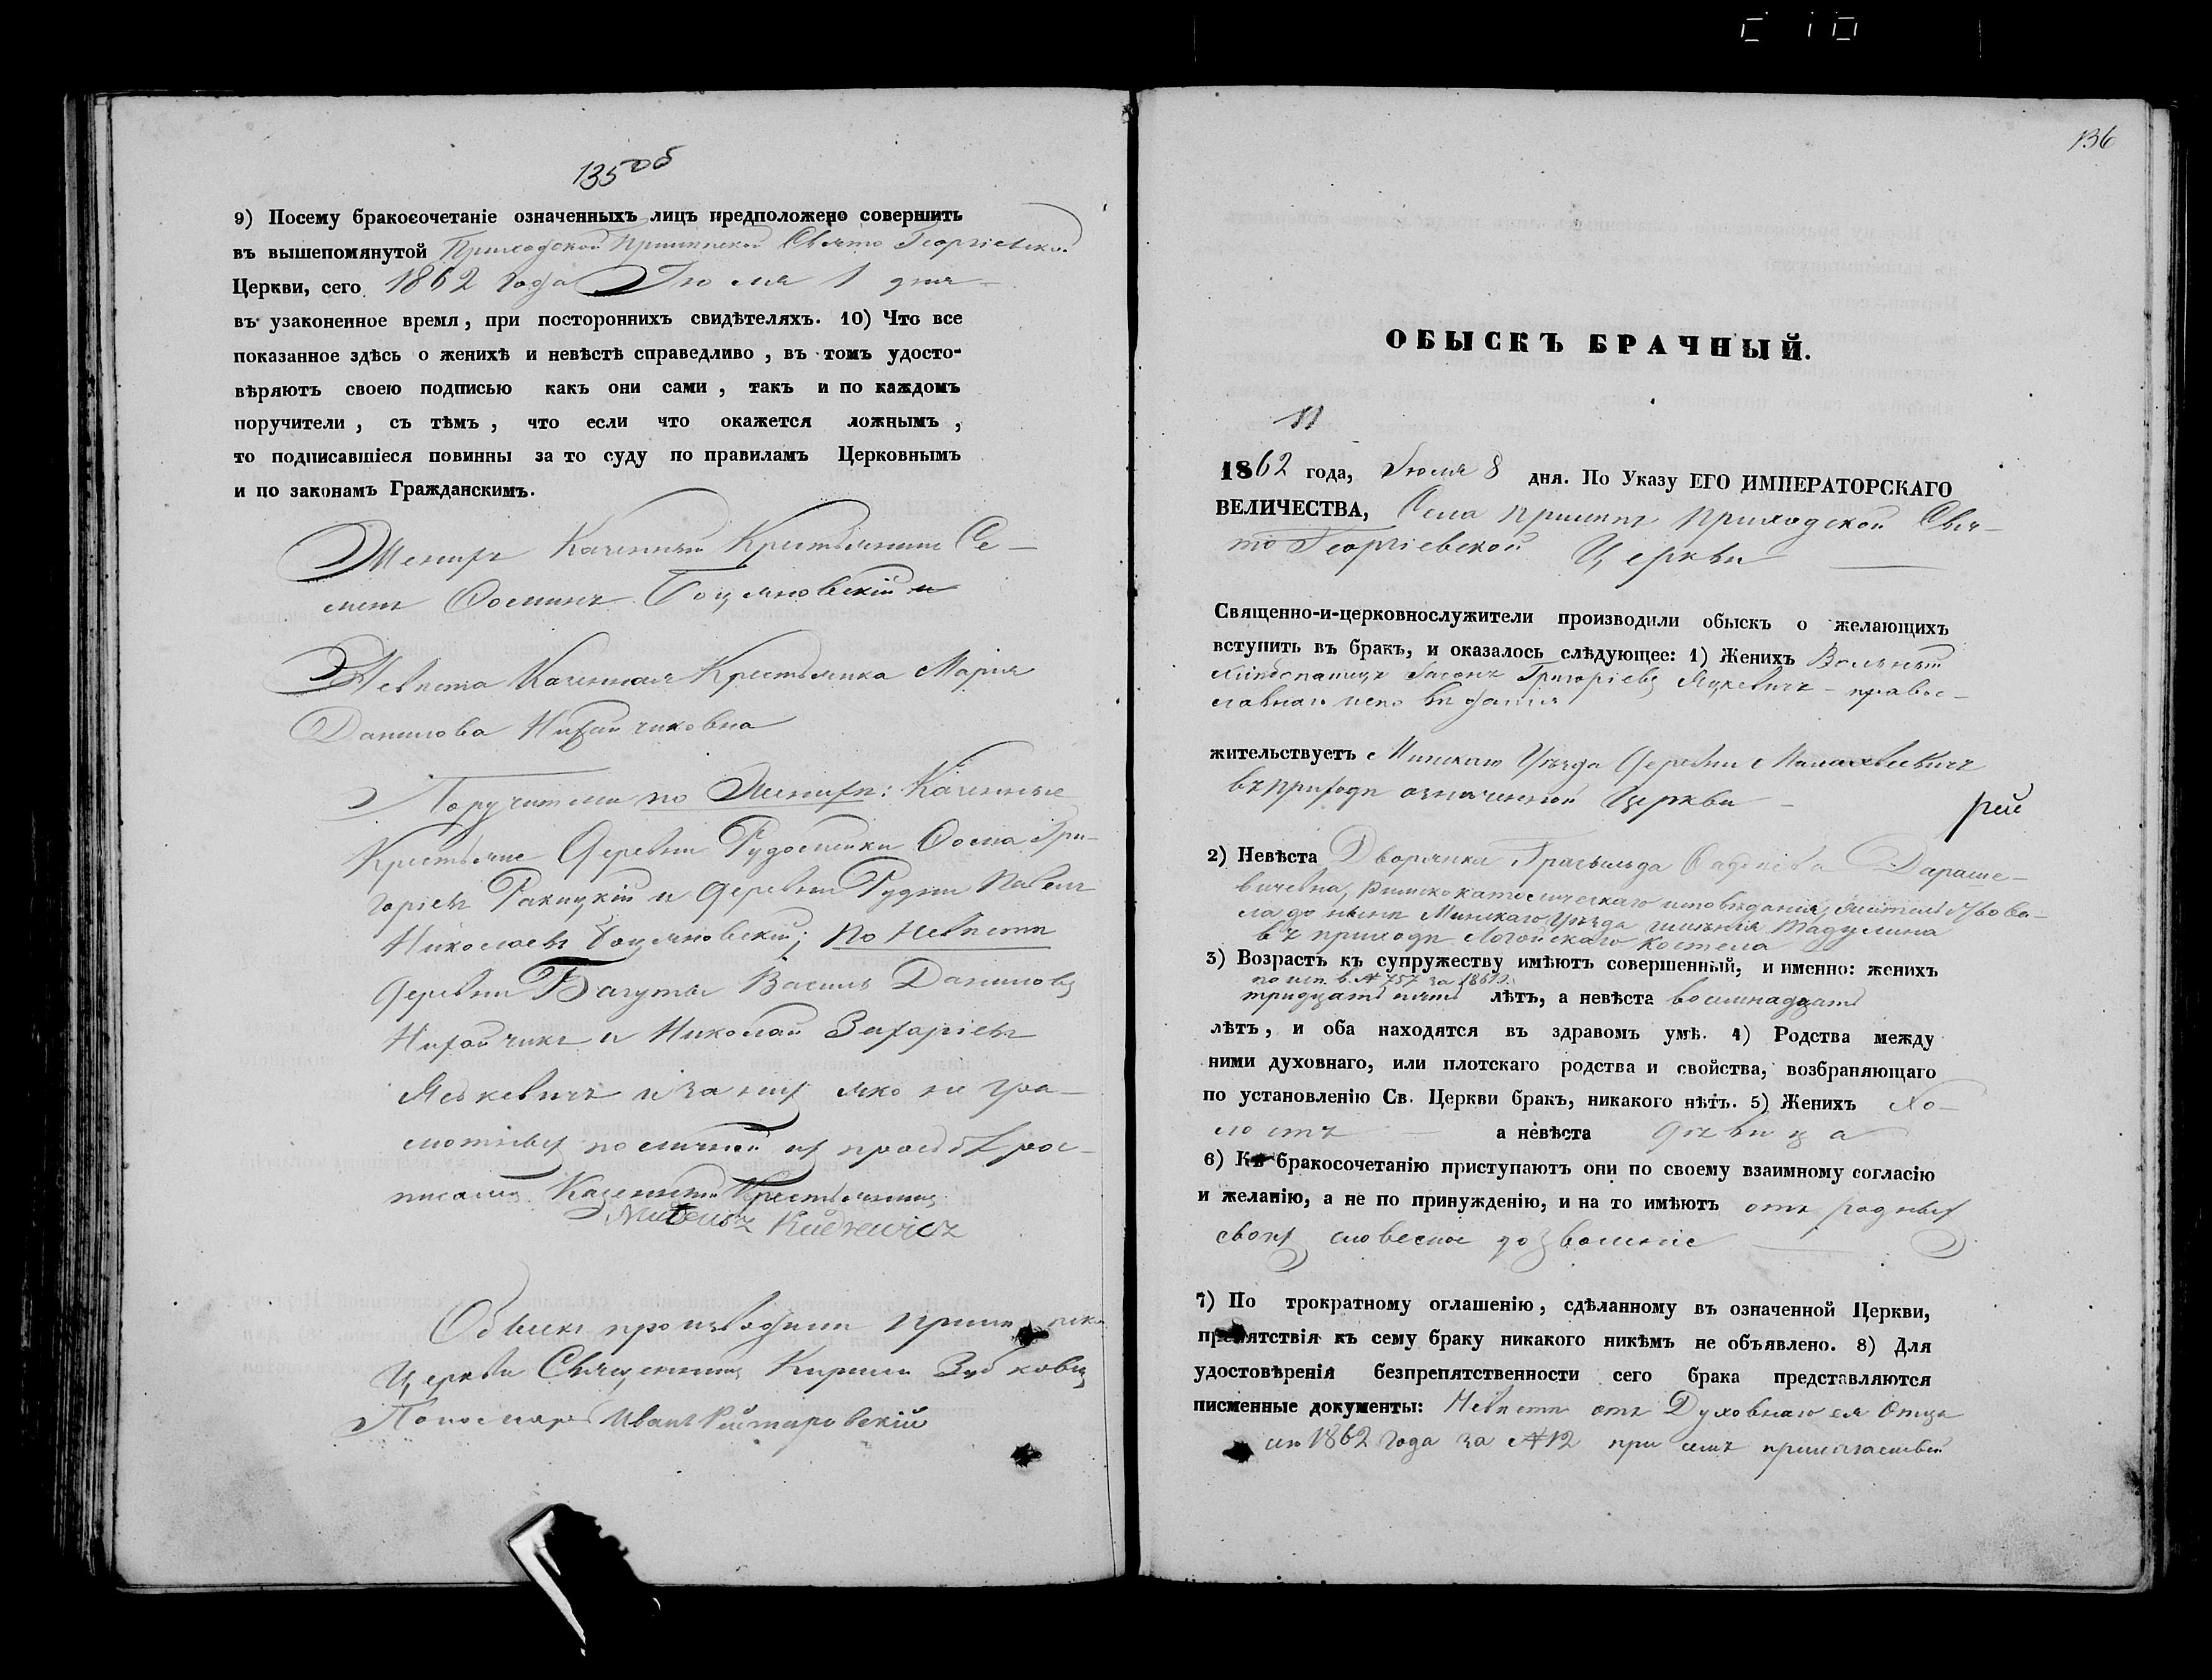 135 об
9) Посему бракосочетаніе означенныхъ лицъ предположено совершить
въ вышепомянутой Приходской Пришнской Свято Георгіевской
Церкви, сего 1862 года Іюля 1 дня
въ узаконенное время, при постороннихъ свидѣтеляхъ. 10) Что все
показанное здѣсь о женихѣ и невѣстѣ справедливо, въ томъ удосто-
вѣряютъ своею подписью какъ они сами, такъ и по каждомъ
поручители, съ тѣмъ, что если что окажется ложнымъ,
то подписавшіеся повинны за то суду по правиламъ Церковнымъ
и по законамъ Гражданскимъ.
Женихъ Казенный Крестьянинъ Се-
менъ Фоминъ Боцяновскій и
Невѣста Казенная Крестьянка Марія
Данилова Нихайчиковна
Поручители по Женихѣ: Казенные
Крестьяне Деревни Рудоменки Фома Гри-
горіевъ Ракицкій и Деревни Рудни Павелъ
Николаевъ Боцяновскій; По Невѣстѣ
Деревни Багуты Василь Даниловъ
Нихайчикъ и Николай Захаріевъ
Яськевичъ и за нихъ яко не гра-
мотныхъ по личной ихъ прозьбѣ рос-
писался Казенный Крестьянинъ
Mateusz Kudrewicz
Обыскъ производили
Церкви Священникъ Кирилъ Зубковичъ
Пономарь Иванъ Рейтаровскій
136
ОБЫСКЪ БРАЧНЫЙ.
11
1862 года, Іюля 8 дня. По Указу ЕГО ИМПЕРАТОРСКАГО
ВЕЛИЧЕСТВА, Села Пришнъ Приходской Свя-
то Георгіевской Церкви
Священно-и-церковнослужители производили обыскъ о желающихъ
вступить въ бракъ, и оказалось слѣдующее: 1) Женихъ Вольный
хлѣбопашецъ Григоріевъ Яцкевичъ - правос-
лавнаго исповѣданія
жительствуетъ Минскаго Уѣзда Деревни
въ приходѣ означенной Церкви
2) Невѣста Дворянка Фадеева Дараше-
вичевна, римско католическаго исповѣданія, жительствова-
ла до нынѣ Минскаго Уѣзда имѣнія Тадулина
въ приходѣ Логойскаго костела
3) Возрастъ къ супружеству имѣютъ совершенный, и именно: женихъ
по исп. в. № 757 за 1861 г.
тридцать пять лѣтъ, а невѣста восемнадцать
лѣтъ, и оба находятся въ здравомъ умѣ. 4) Родства между
ними духовнаго, или плотскаго родства и свойства, возбраняющаго
по установленію Св. Церкви бракъ, никакого нѣтъ. 5) Женихъ Хо-
лостъ а невѣста дѣвица
6) Къ бракосочетанію приступаютъ они по своему взаимному согласію
и желанію, а не по принужденію, и на то имѣютъ отъ родныхъ
своихъ словесное дозволеніе
7) По трократному оглашенію, сдѣланному въ означенной Церкви,
препятствія къ сему браку никакого никѣмъ не объявлено. 8) Для
удостовѣренія безпрепятственности сего брака представляются
писменные документы: Невѣсты отъ Духовнаго ея Отца
1862 года за №12 при семъ